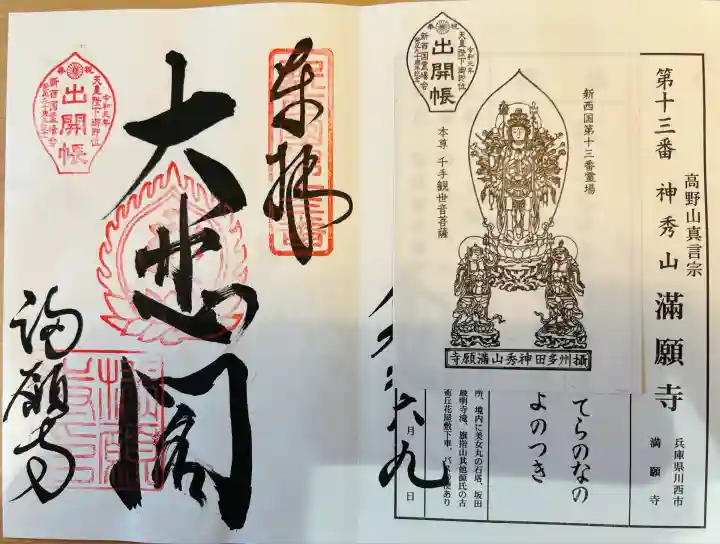 第十三番 神秀山 満願寺
高野山真言宗
兵庫県川西市
満願寺
新西国第十三番霊場
本尊 千手観世音菩薩
攝州多田神秀山満願寺
出開帳
奉祝
令和元年
天皇陛下御即位
新西国霊場会
てらのなの
よのつき
所、境内に美女丸の石塔、坂田
最明寺滝、旗指山其他源氏の古
布丘花屋敷下車、バス
便あり
六月九日
奉拝
大悲閣
満願寺
出開帳
奉祝
令和元年
天皇陛下御即位
新西国霊場会